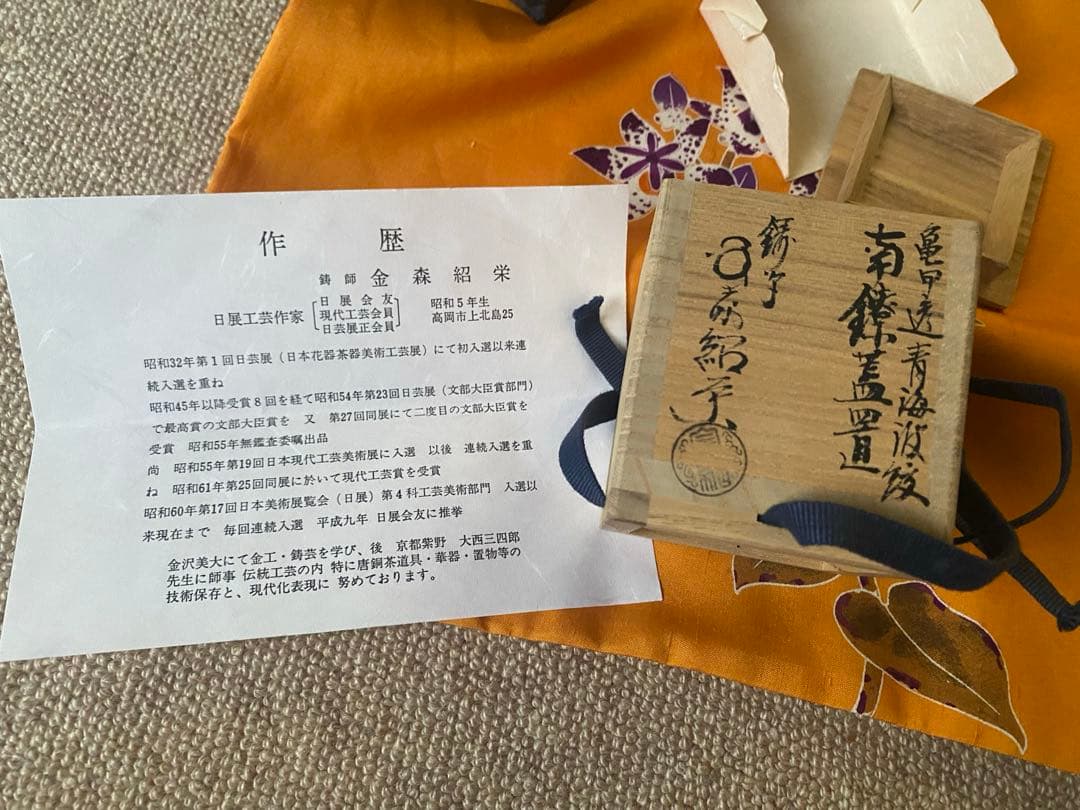 作 歴
鋳師 金森紹栄
日展工芸作家
日展会友
現代工芸会員
日芸展正会員
昭和5年生
高岡市上北島25
昭和32年第1回日芸展（日本花器茶器美術工芸展）にて初入選以来連
続入選を重ね
昭和45年以降受賞8回を経て昭和54年第23回日芸展（文部大臣賞部門）
で最高賞の文部大臣賞を 又 第27回同展にて二度目の文部大臣賞を
受賞 昭和55年無鑑査委嘱出品
尚 昭和55年第19回日本現代工芸美術展に入選 以後 連続入選を重
ね 昭和61年第25回同展に於いて現代工芸賞を受賞
昭和60年第17回日本美術展覧会（日展）第4科工芸美術部門 入選以
来現在まで 毎回連続入選 平成九年 日展会友に推挙
金沢美大にて金工・鋳芸を学び、後 京都紫野 大西三四郎
先生に師事 伝統工芸の内 特に唐銅茶道具・華器・置物等の
技術保存と、現代化表現に 努めております。
亀甲透青海波紋
南鐐蓋置
紹栄